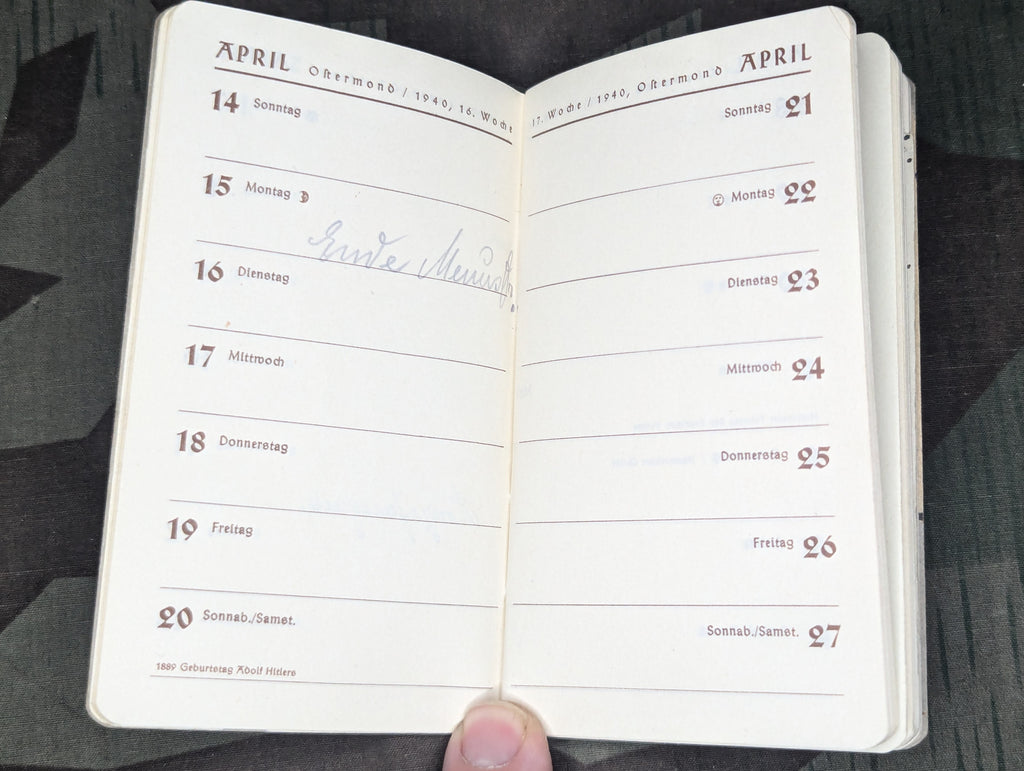 APRIL Ostermond / 1940, 16. Woche
14 Sonntag
15 Montag
Ende
16 Dienstag
17 Mittwoch
18 Donnerstag
19 Freitag
20 Sonnab./Samst.
1889 Geburtstag Adolf Hitlers
17. Woche / 1940, Ostermond APRIL
Sonntag 21
Montag 22
Dienstag 23
Mittwoch 24
Donnerstag 25
Freitag 26
Sonnab./Samst. 27